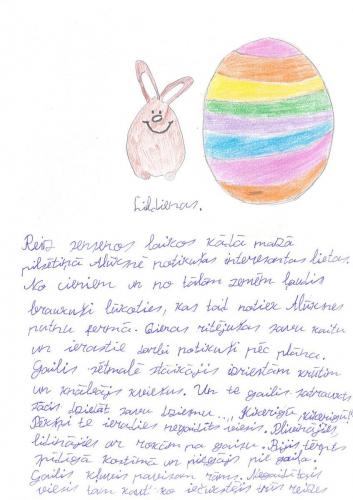 Lieldienas.
Reiz senseros laikos kādā mazā
pilsētiņā Alūksnē notikušas interesantas lietas.
No ciemiem un no tālām zemēm ļaudis
braukuši lūkoties, kas tad notiek Alūksnes
putnu fermā. Dienas ritējušas savu gaitu
un ierastie darbi notikuši pēc plāna.
Gailis sētmalē staigājis izriestām krūtīm
un knābājis kviešus. Un te gailis satraukts
sācis dziedāt savu dziesmu..., Kikerigū, kikerigū!
Pēkšņi te ieradies negaidīts viesis.
līlinājies ar rokām pa gaisu. Bijis tērpts
spīdīgā kostīmā un pielējis pie gaiļa.
Gailis kļuvis pavisam rāms. Negaidītais
viesis tam kaut ko iečukstējis